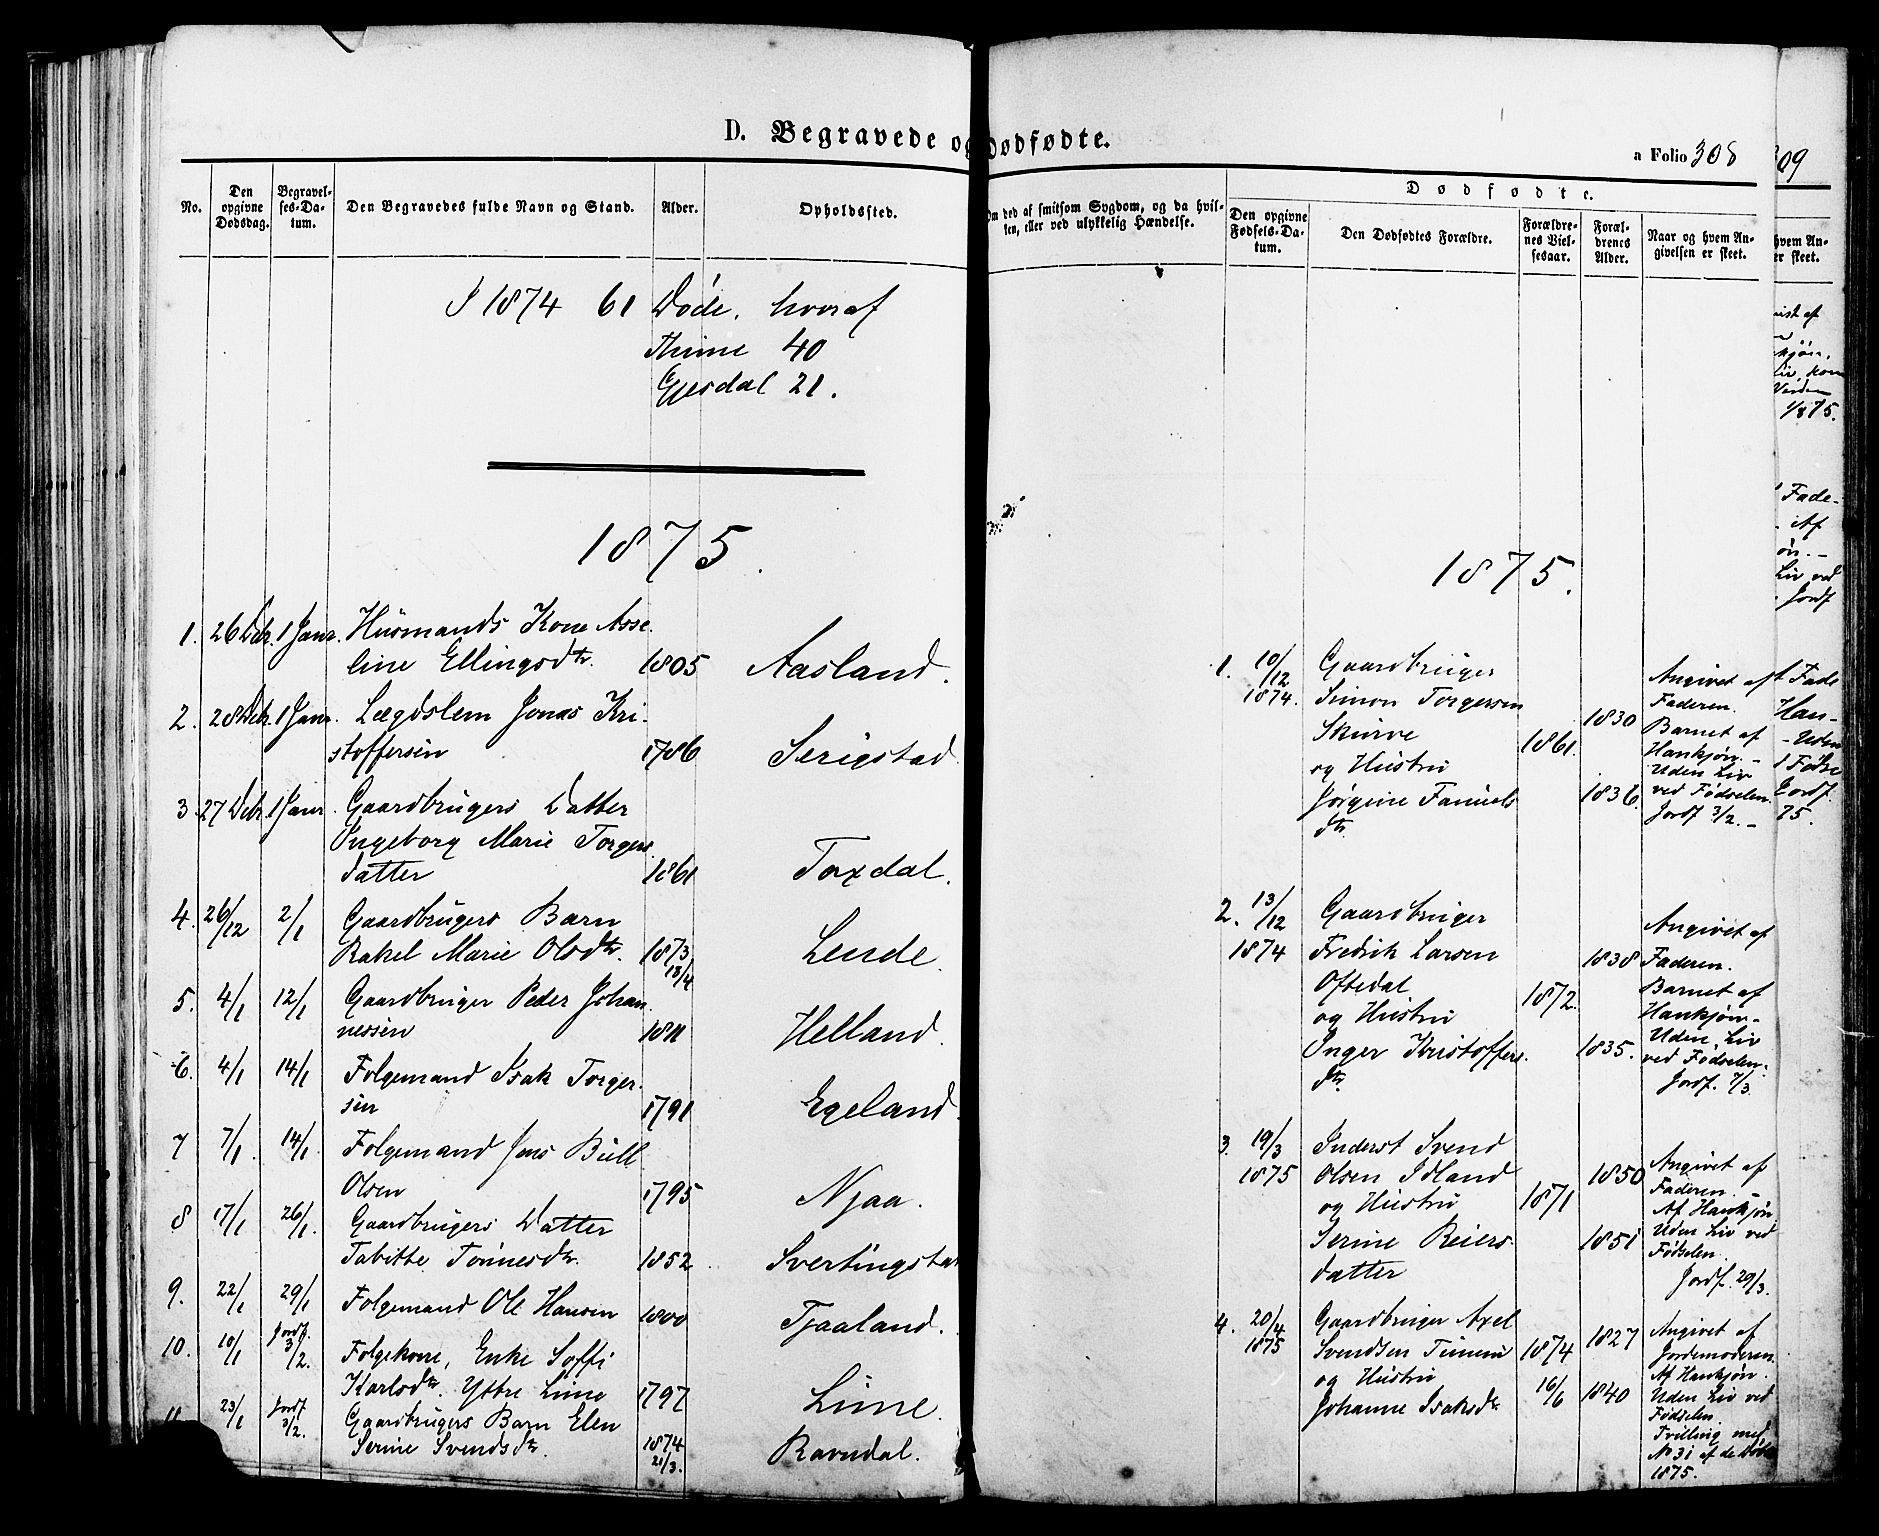 D. Begravede og Dødfødte.
a Folio 308
No.
Den opgivne Dødsdag.
Begravelses-Datum.
Den Begravedes fulde Navn og Stand.
Alder.
Opholdssted.
Om død af smitsom Sygdom, og da hvilken, eller ved ulykkelig Hændelse.
Dødfødte.
Den opgivne Fødsels-Datum.
Den Dødfødtes Forældre.
Forældrenes Vielsesaar.
Forældrenes Alder.
Naar og hvem Angivelsen er skeet.
I 1874 61 Døde, hvoraf
Thime 40
Gjesdal 21.
1875.
1. 26 Debr. 1 Janr. Husmands Kone Asse-
line Ellingsdtr. 1805 Aasland.
2. 28 Debr. 1 Janr. Lægdslem Jonas Kri-
stoffersen 1786 Serigstad
3. 27 Debr. 1 Janr. Gaardbrugers Datter
Ingeborg Marie Torgers
datter 1861 Taxdal.
4. 26/12 2/1 Gaardbrugers Barn
Rakel Marie Olsdtr. 1873 18/4 Lende.
5. 4/1 12/1 Gaardbruger Peder Johan
nessen 1811 Helland.
6. 4/1 14/1 Folgemand Isak Torger-
sen 1791 Egeland.
7 7/1 14/1 Folgemand Jens Bull
Olsen 1795 Njaa.
8 17/1 26/1 Gaardbrugers Datter
Tabitte Tønnesdtr. 1852 Svertingstad
9. 22/1 29/1 Folgemand Ole Hansen 1800 Tjaaland.
10. 10/1 Jordf. 3/2. Folgekone, Enke Soffi
Karlsdtr. Yttre Lime 1797 Lime.
11 23/1 Jordf 3/2. Gaardbrugers Barn Elen
Serine Svendsdtr. 1874 21/3. Ravndal.
1875.
1. 10/12 1874. Gaardbruger
Simon Torgersen
Skurve
og Hustru
Jørgine Fanuels
dtr.
1861.
1830
1836.
Angivet af
Faderen.
Barnet af
Hankjøn. -
Uden Liv
ved Fødselen.
Jordf 3/2. -
2. 13/12 1874 Gaardbruger
Fredrik Larsen
Oftedal
og Hustru
Inger Kristoffers.
dtr.
1872.
1838
1835.
Angivet af
Faderen.
Barnet af
Hankjøn-
Uden Liv
ved Fødselen.
Jordf. 7/3.
3. 19/3 1875 Inderst Svend
Olsen Idland
og Hustru
Serine Reiers-
datter
1871
1850
1851
Angivet af
Faderen. -
Af Hankjøn
Uden Liv ved
Fødselen.
Jordf. 29/3.
4. 20/4 1875 Gaardbruger Axel
Svendsen Tunem
og Hustru
Johanne Isaksdtr
1874
16/6
1827
1840
Angivet af
Jordemoderen.
Af Hankjøn.
Uden Liv ved
Fødselen.
Tvilling med
No 31 af de Døde
1875.
309
hvem An-
er skeet.
1/875.
Fade-
Af
Liv ved
Jordf
Fade
Han-
- Uden
Fødse
Jordf.
75.